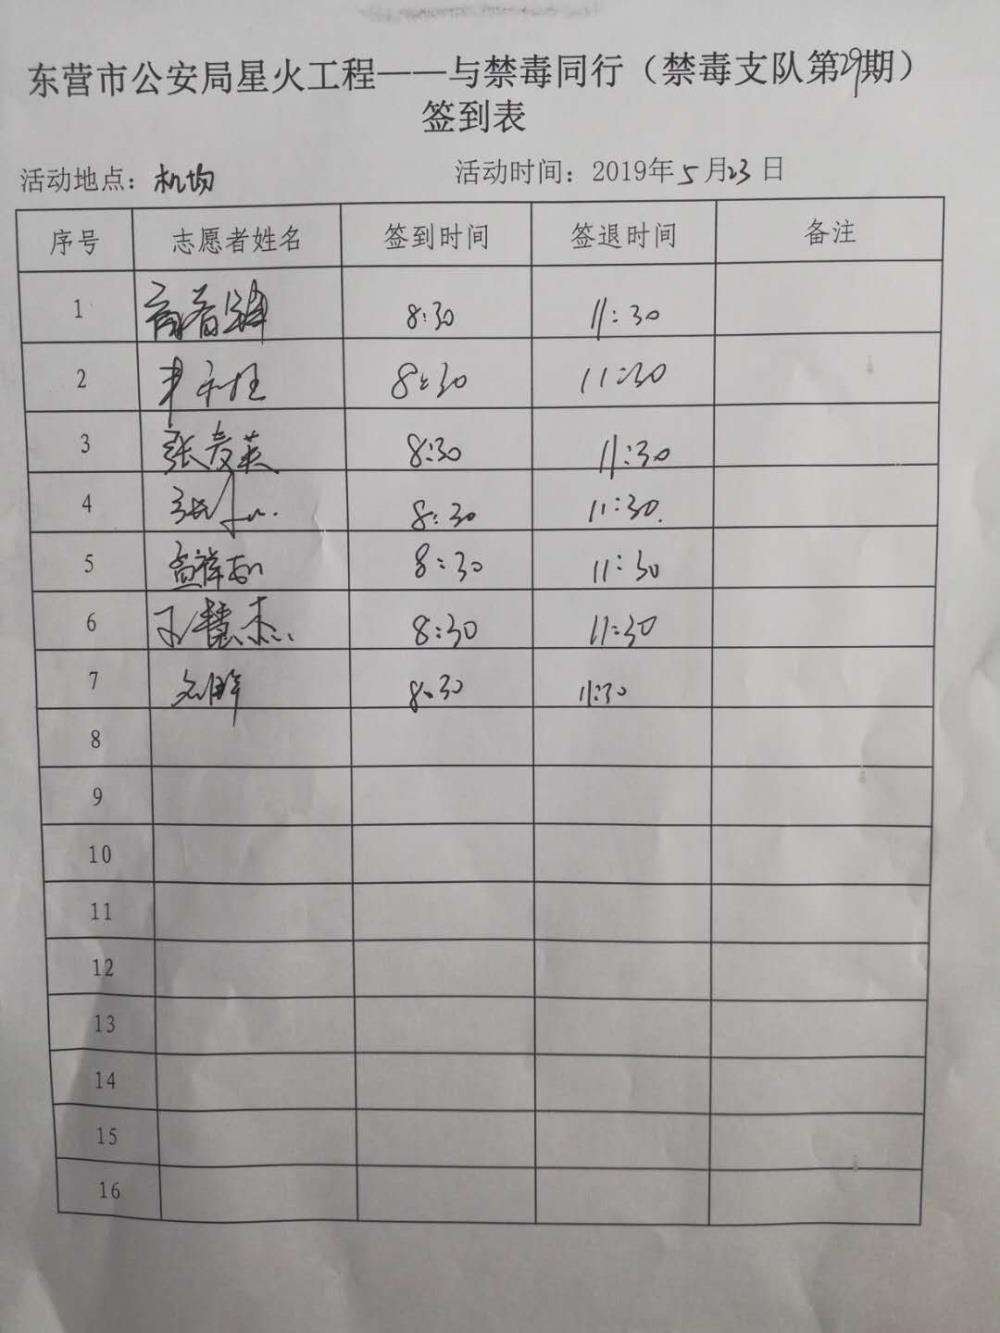 东营市公安局星火工程——与禁毒同行（禁毒支队第29期）
签到表
活动地点：机场 活动时间：2019年5月23日
序号 志愿者姓名 签到时间 签退时间 备注
1 8:30 11:30
2 8:30 11:30
3 张爱英 8:30 11:30
4 8:30 11:30
5 8:30 11:30
6 王慧杰 8:30 11:30
7 8:30 11:30
8
9
10
11
12
13
14
15
16